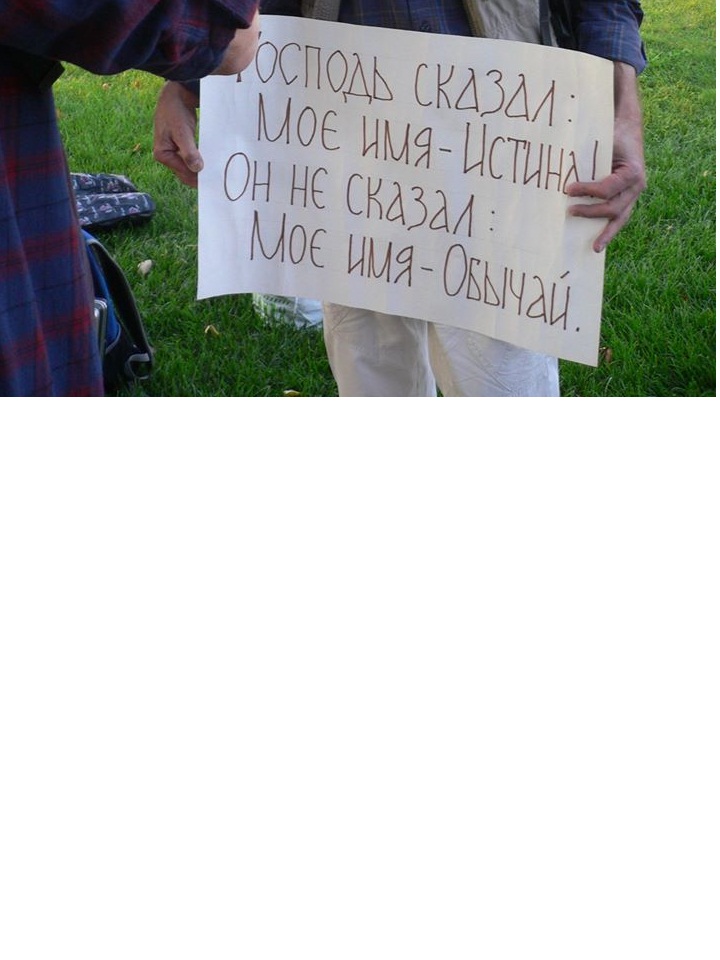 Господь сказал:
Мое имя - Истина!
Он не сказал:
Мое имя - Обычай.